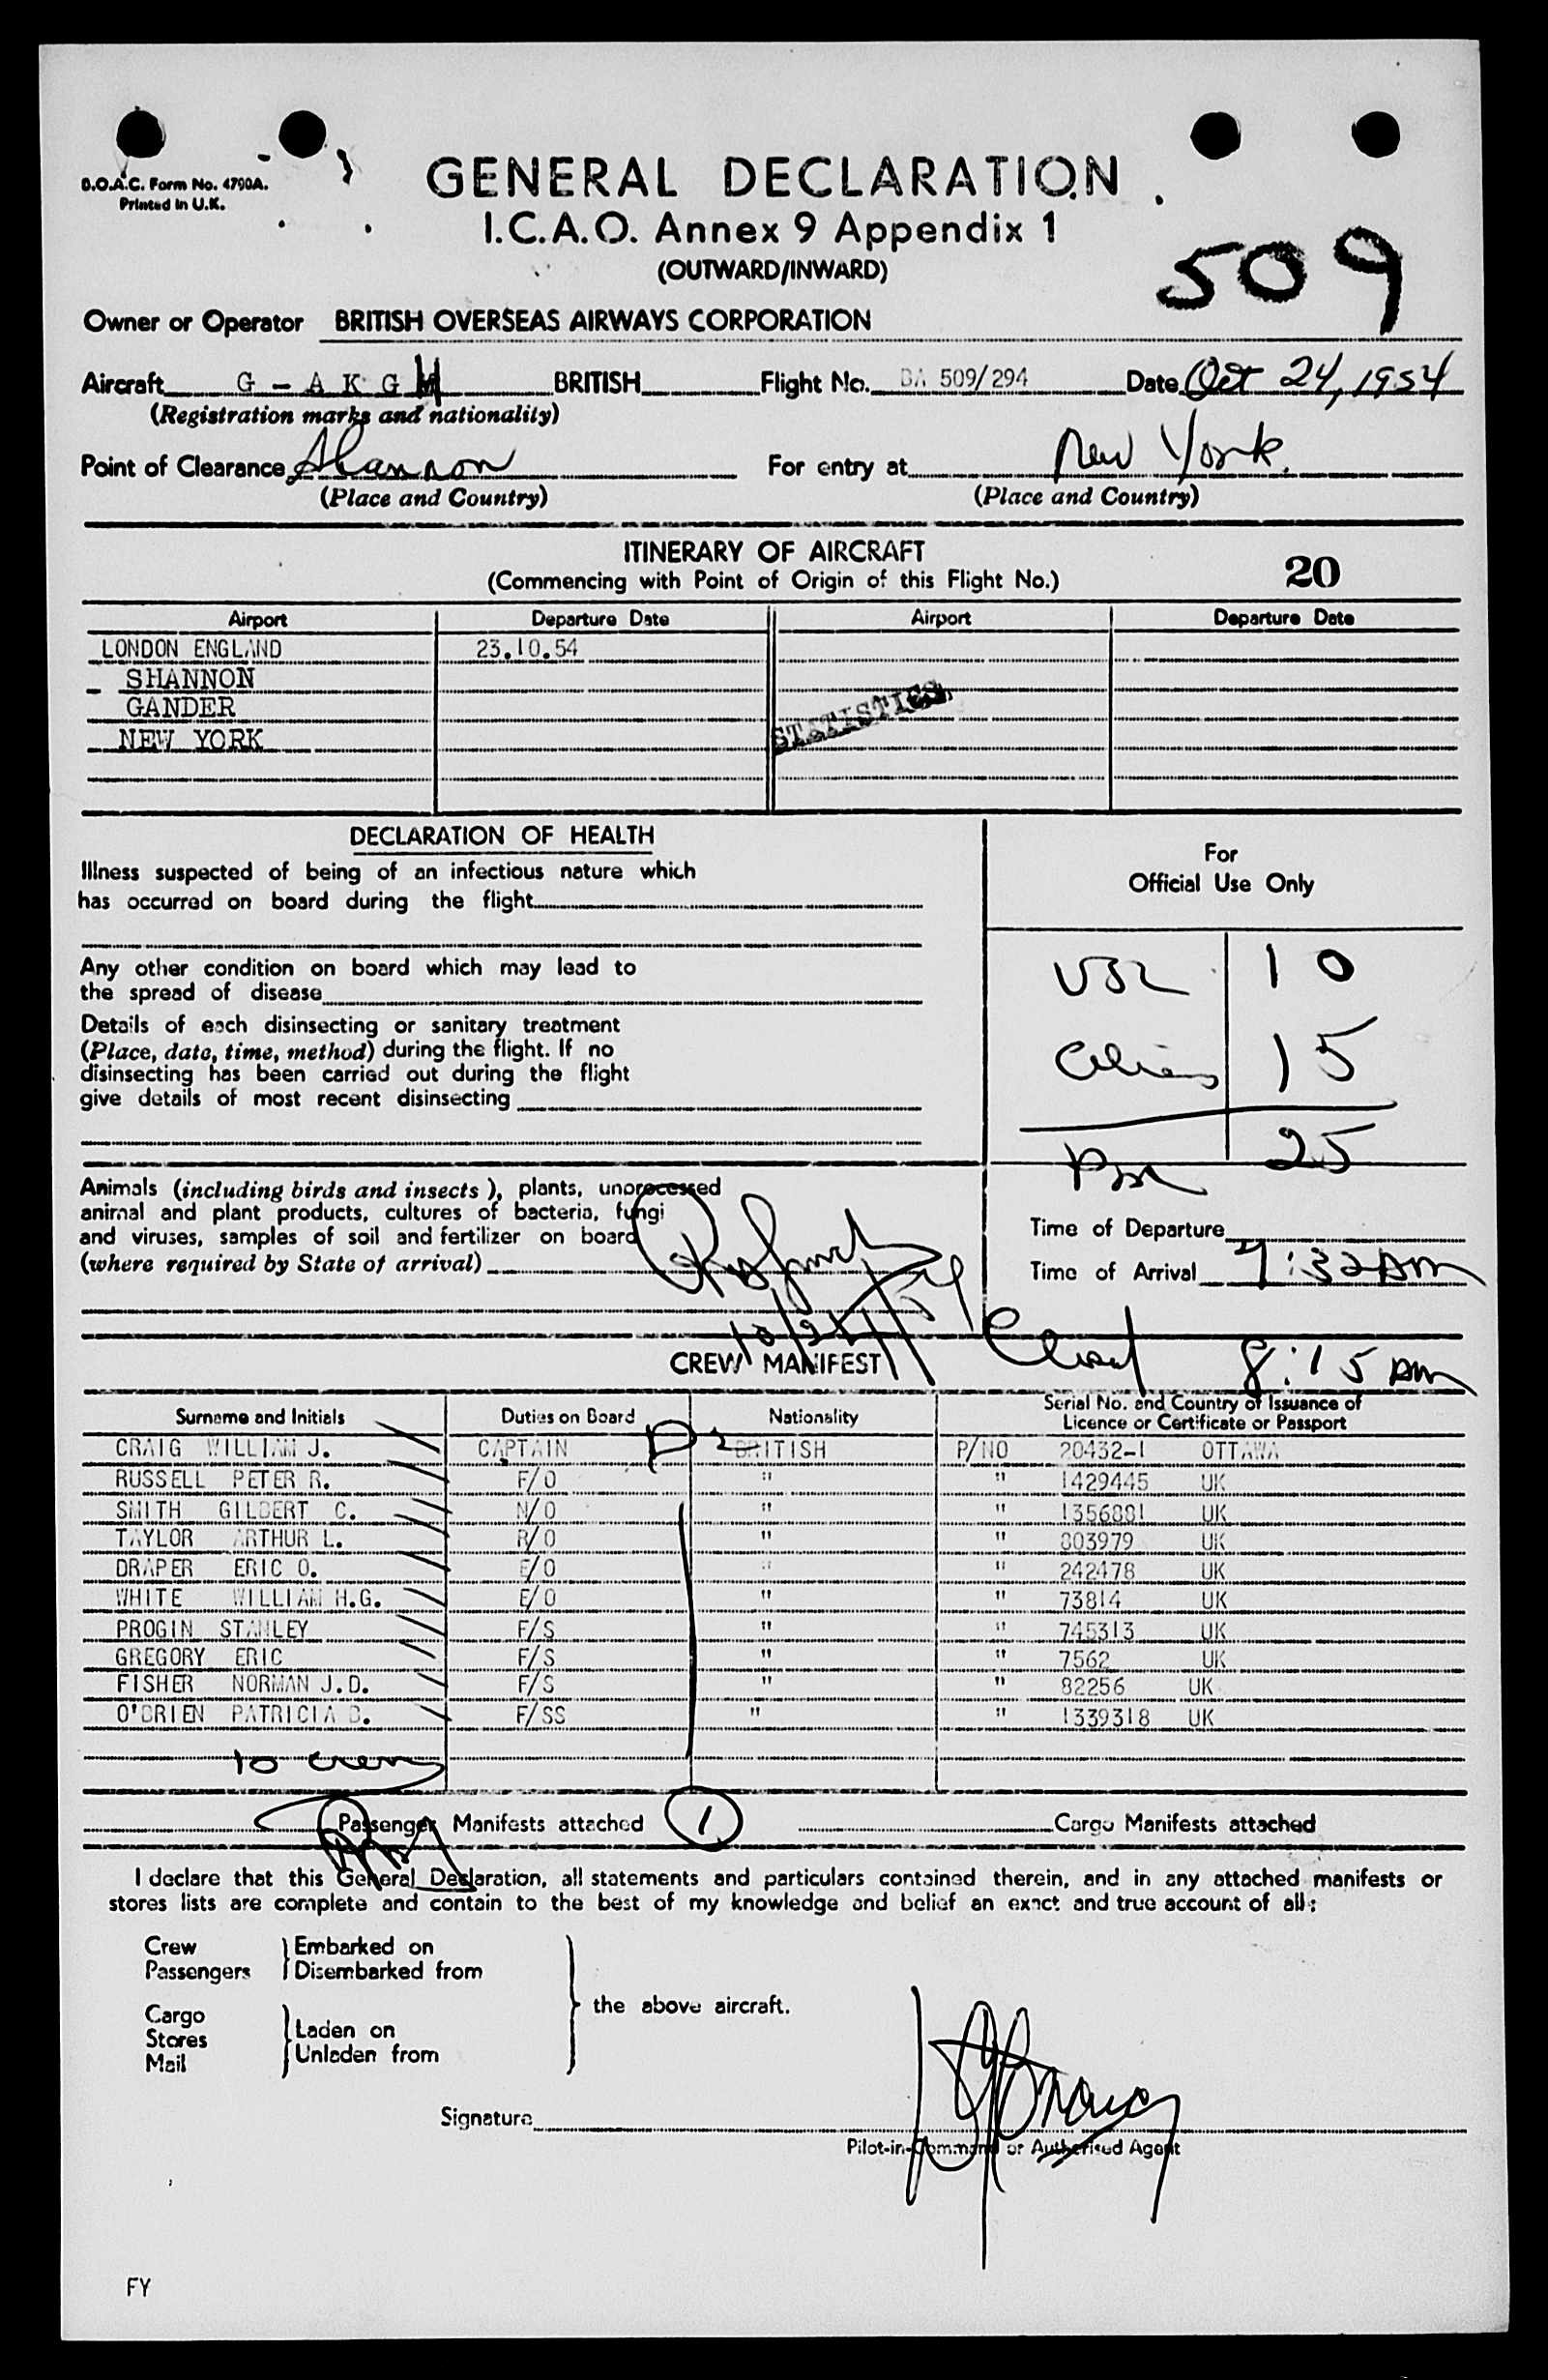 B.O.A.C. Form No. 4790A.
Printed in U.K.
GENERAL DECLARATION
I.C.A.O. Annex 9 Appendix 1
(OUTWARD/INWARD)
509
Owner or Operator BRITISH OVERSEAS AIRWAYS CORPORATION
Aircraft G - A K G M BRITISH Flight No. BA 509/294 Date Oct 24, 1954
(Registration marks and nationality)
Point of Clearance Shannon For entry at New York.
(Place and Country) (Place and Country)
ITINERARY OF AIRCRAFT
(Commencing with Point of Origin of this Flight No.) 20
Airport Departure Date Airport Departure Date
LONDON ENGLAND 23.10.54
SHANNON
GANDER
NEW YORK
STATISTICS
DECLARATION OF HEALTH
Illness suspected of being of an infectious nature which
has occurred on board during the flight
Any other condition on board which may lead to
the spread of disease
Details of each disinsecting or sanitary treatment
(Place, date, time, method) during the flight. If no
disinsecting has been carried out during the flight
give details of most recent disinsecting
For
Official Use Only
10
Aliens 15
25
Animals (including birds and insects ), plants, unprocessed
animal and plant products, cultures of bacteria, fungi
and viruses, samples of soil and fertilizer on board
(where required by State of arrival)
10/24/54
Time of Departure
Time of Arrival 7:32 AM
8:15 AM
CREW MANIFEST
Surname and Initials Duties on Board Nationality Serial No. and Country of Issuance of Licence or Certificate or Passport
CRAIG WILLIAM J. CAPTAIN BRITISH P/NO 20432-1 OTTAWA
RUSSELL PETER R. F/O " " 1429445 UK
SMITH GILBERT C. N/O " " 1356881 UK
TAYLOR ARTHUR L. R/O " " 803979 UK
DRAPER ERIC O. E/O " " 242478 UK
WHITE WILLIAM H.G. E/O " " 73814 UK
PROGIN STANLEY F/S " " 745313 UK
GREGORY ERIC F/S " " 7562 UK
FISHER NORMAN J.D. F/S " " 82256 UK
O'BRIEN PATRICIA F/SS " " 1339318 UK
10 crew
Passenger Manifests attached 1 Cargo Manifests attached
I declare that this General Declaration, all statements and particulars contained therein, and in any attached manifests or
stores lists are complete and contain to the best of my knowledge and belief an exact and true account of all:
Crew Embarked on
Passengers Disembarked from
the above aircraft.
Cargo
Stores Laden on
Mail Unladen from
Signature
Pilot-in-Command or Authorised Agent
FY